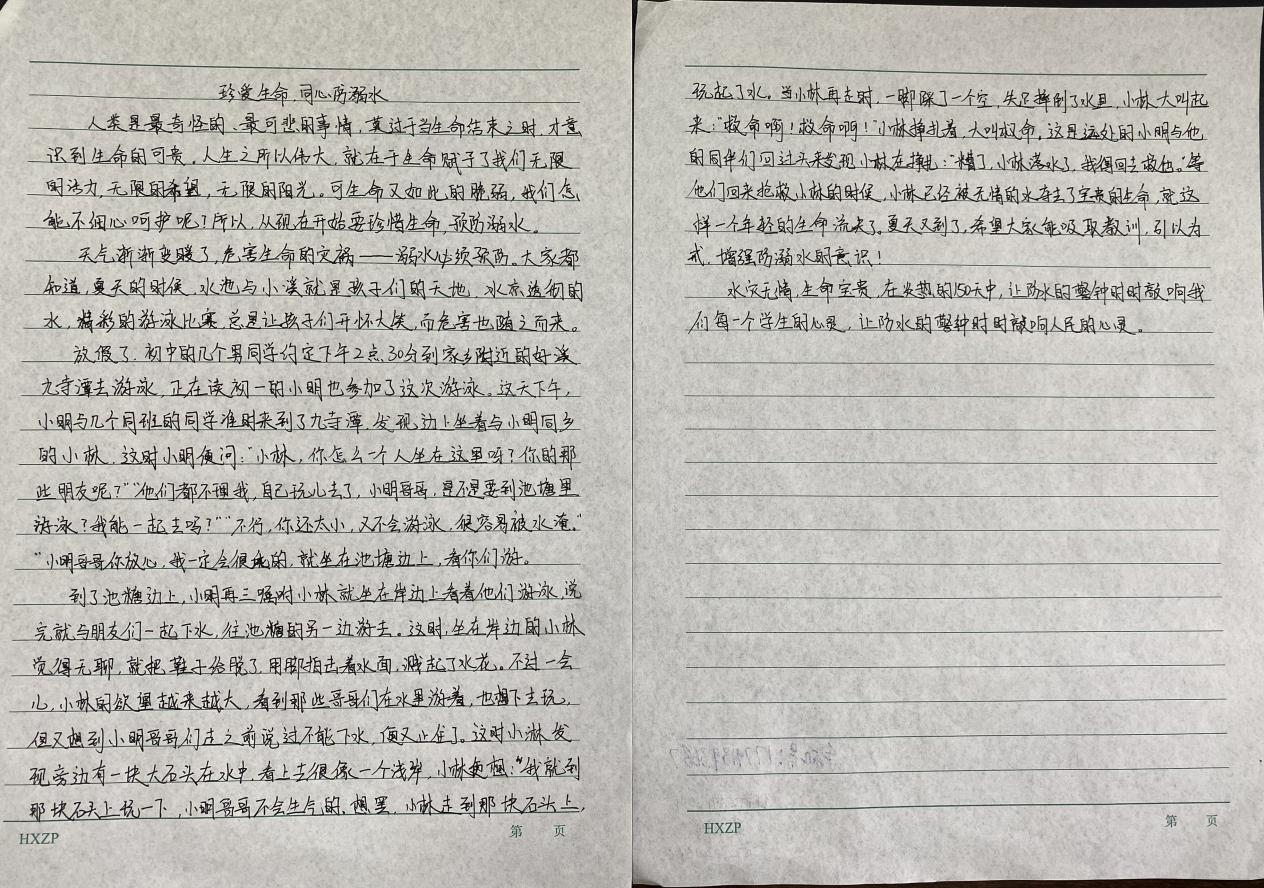 珍爱生命,同心防溺水
人类是最奇怪的、最可悲的事情,莫过于当生命结束之时,才意
识到生命的可贵。人生之所以伟大,就在于生命赋予了我们无限
的活力,无限的希望,无限的阳光。可生命又如此的脆弱,我们怎
能不细心呵护呢?所以,从现在开始要珍惜生命,预防溺水。
天气渐渐变暖了,危害生命的灾祸——溺水必须预防。大家都
知道,夏天的时候,水池与小溪就是孩子们的天地,冰凉透彻的
水,精彩的游泳比赛,总是让孩子们开怀大笑,而危害也随之而来。
放假了,初中的几个男同学约定下午2点30分到家乡附近的好溪
九寺潭去游泳,正在读初一的小明也参加了这次游泳。这天下午,
小明与几个同班的同学准时来到了九寺潭,发现边上坐着与小明同乡
的小林,这时小明便问:“小林,你怎么一个人坐在这里呀?你的那
些朋友呢?”“他们都不理我,自己玩儿去了,小明哥哥,是不是要到池塘里
游泳?我能一起去吗?”“不行,你还太小,又不会游泳,很容易被水淹。”
“小明哥哥你放心,我一定会很乖的,就坐在池塘边上,看你们游。
到了池糖边上,小明再三嘱咐小林就坐在岸边上看着他们游泳,说
完就与朋友们一起下水,往池糖的另一边游去。这时,坐在岸边的小林
觉得无聊,就把鞋子给脱了,用脚拍击着水面,溅起了水花。不过一会
儿,小林的欲望越来越大,看到那些哥哥们在水里游着,也想下去玩,
但又想到小明哥哥们走之前说过不能下水,便又止住了。这时小淋发
现旁边有一块大石头在水中,看上去很像一个浅岸,小林便想:“我就到
那块石头上玩一下,小明哥哥不会生气的。想罢,小林走到那块石头上,
HXZP
第 页
玩起了水。当小林再走时,一脚踩了一个空,失足摔倒了水里,小林大叫起
来:“救命啊!救命啊!”小林挣扎着,大叫救命,这是远处的小明与他
的同伴们回过头来发现小林在挣扎:“糟了,小林落水了,我得回去救他。”等
他们回来抢救小林的时候,小林已经被无情的水夺去了宝贵的生命,就这
样一个年轻的生命流失了。夏天又到了,希望大家能吸取教训,引以为
戒,增强防溺水的意识!
水灾无情,生命宝贵,在炎热的150天中,让防水的警钟时时敲响我
们每一个学生的心灵,让防水的警钟时时敲响人民的心灵。
HXZP
第 页